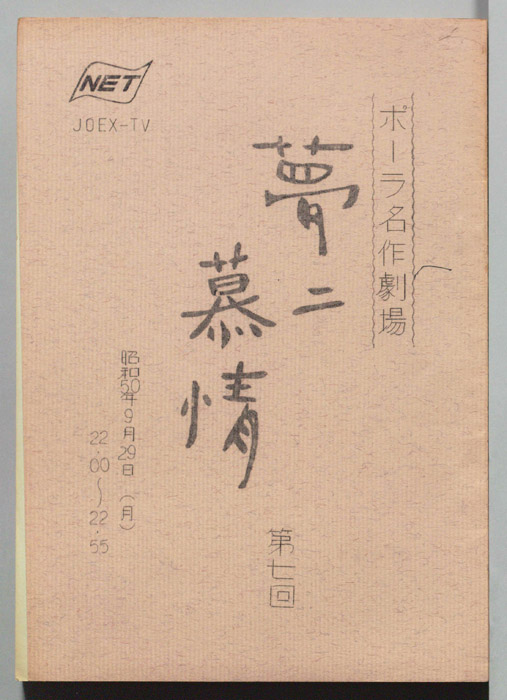 NET
JOEX-TV
ポーラ名作劇場
夢二
慕情
第七回
昭和50年9月29日（月）
22.00〜22.55